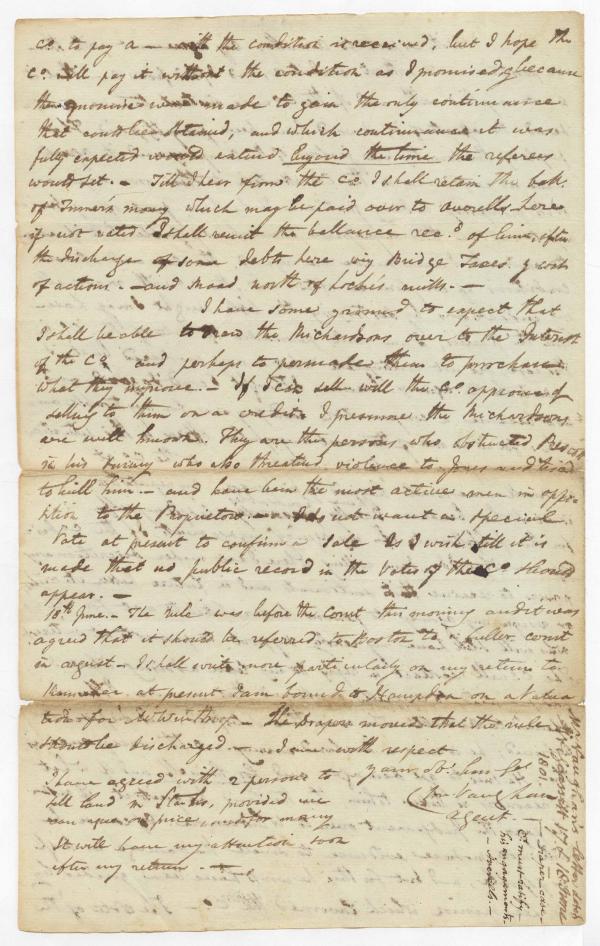 Co. to pay a — with the condition it received, but I hope the
Co. will pay it without the condition as I promised, & because
the promise were made to gain the only continuance
that could be obtained, and which continuance it was
fully expected would extend beyond the time the referees
would set. — Till I hear from the Co. I shall retain the ball.
of Turner's money which may be paid over to Averell, here
if not voted I shall remit the ballance recd. of him, after
the discharge of some debts here viz Bridge Taxes & cost
of actions. — and Road north of Loches mills. —
I have some ground to expect that
I shall be able to draw the Richardsons over to the Interest
of the Co. and perhaps to persuade them to purchase
what they improve. — If I can sell will the Co. approve of
selling to them on a credit. I presume the Richardsons
are well known. They are the persons who obstructed
in his survey who also threatened violence to Jones and
to kill him — and have been the most active men in oppo-
sition to the Proprietors. — I do not want a special
Vote at present to confirm a Sale As I wish till it is
made that no public record in the Votes of the Co. should
appear. —
18th June. — The rule was before the Court this morning and it was
agreed that it should be referred to Boston to a fuller court
in august — I shall write more particularly on my return to
Kennebec at present I am bound to Hampden on a
for Mr Winthrop. — The Drapers moved that the rule
should be discharged. — I am with respect
your Ob. Serv
Chs Vaughan
Agent. —
I have agreed with 2 persons to
sell land in provided we
can agree on price
It will have my attention soon
after my return. —
Mr. Vaughan's letter dated
17 & 18 June
1801
— Draper case —
Co. must ratify
his engagements
— Averells. —